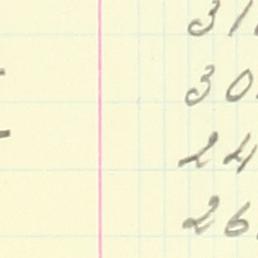 31
30
24
26